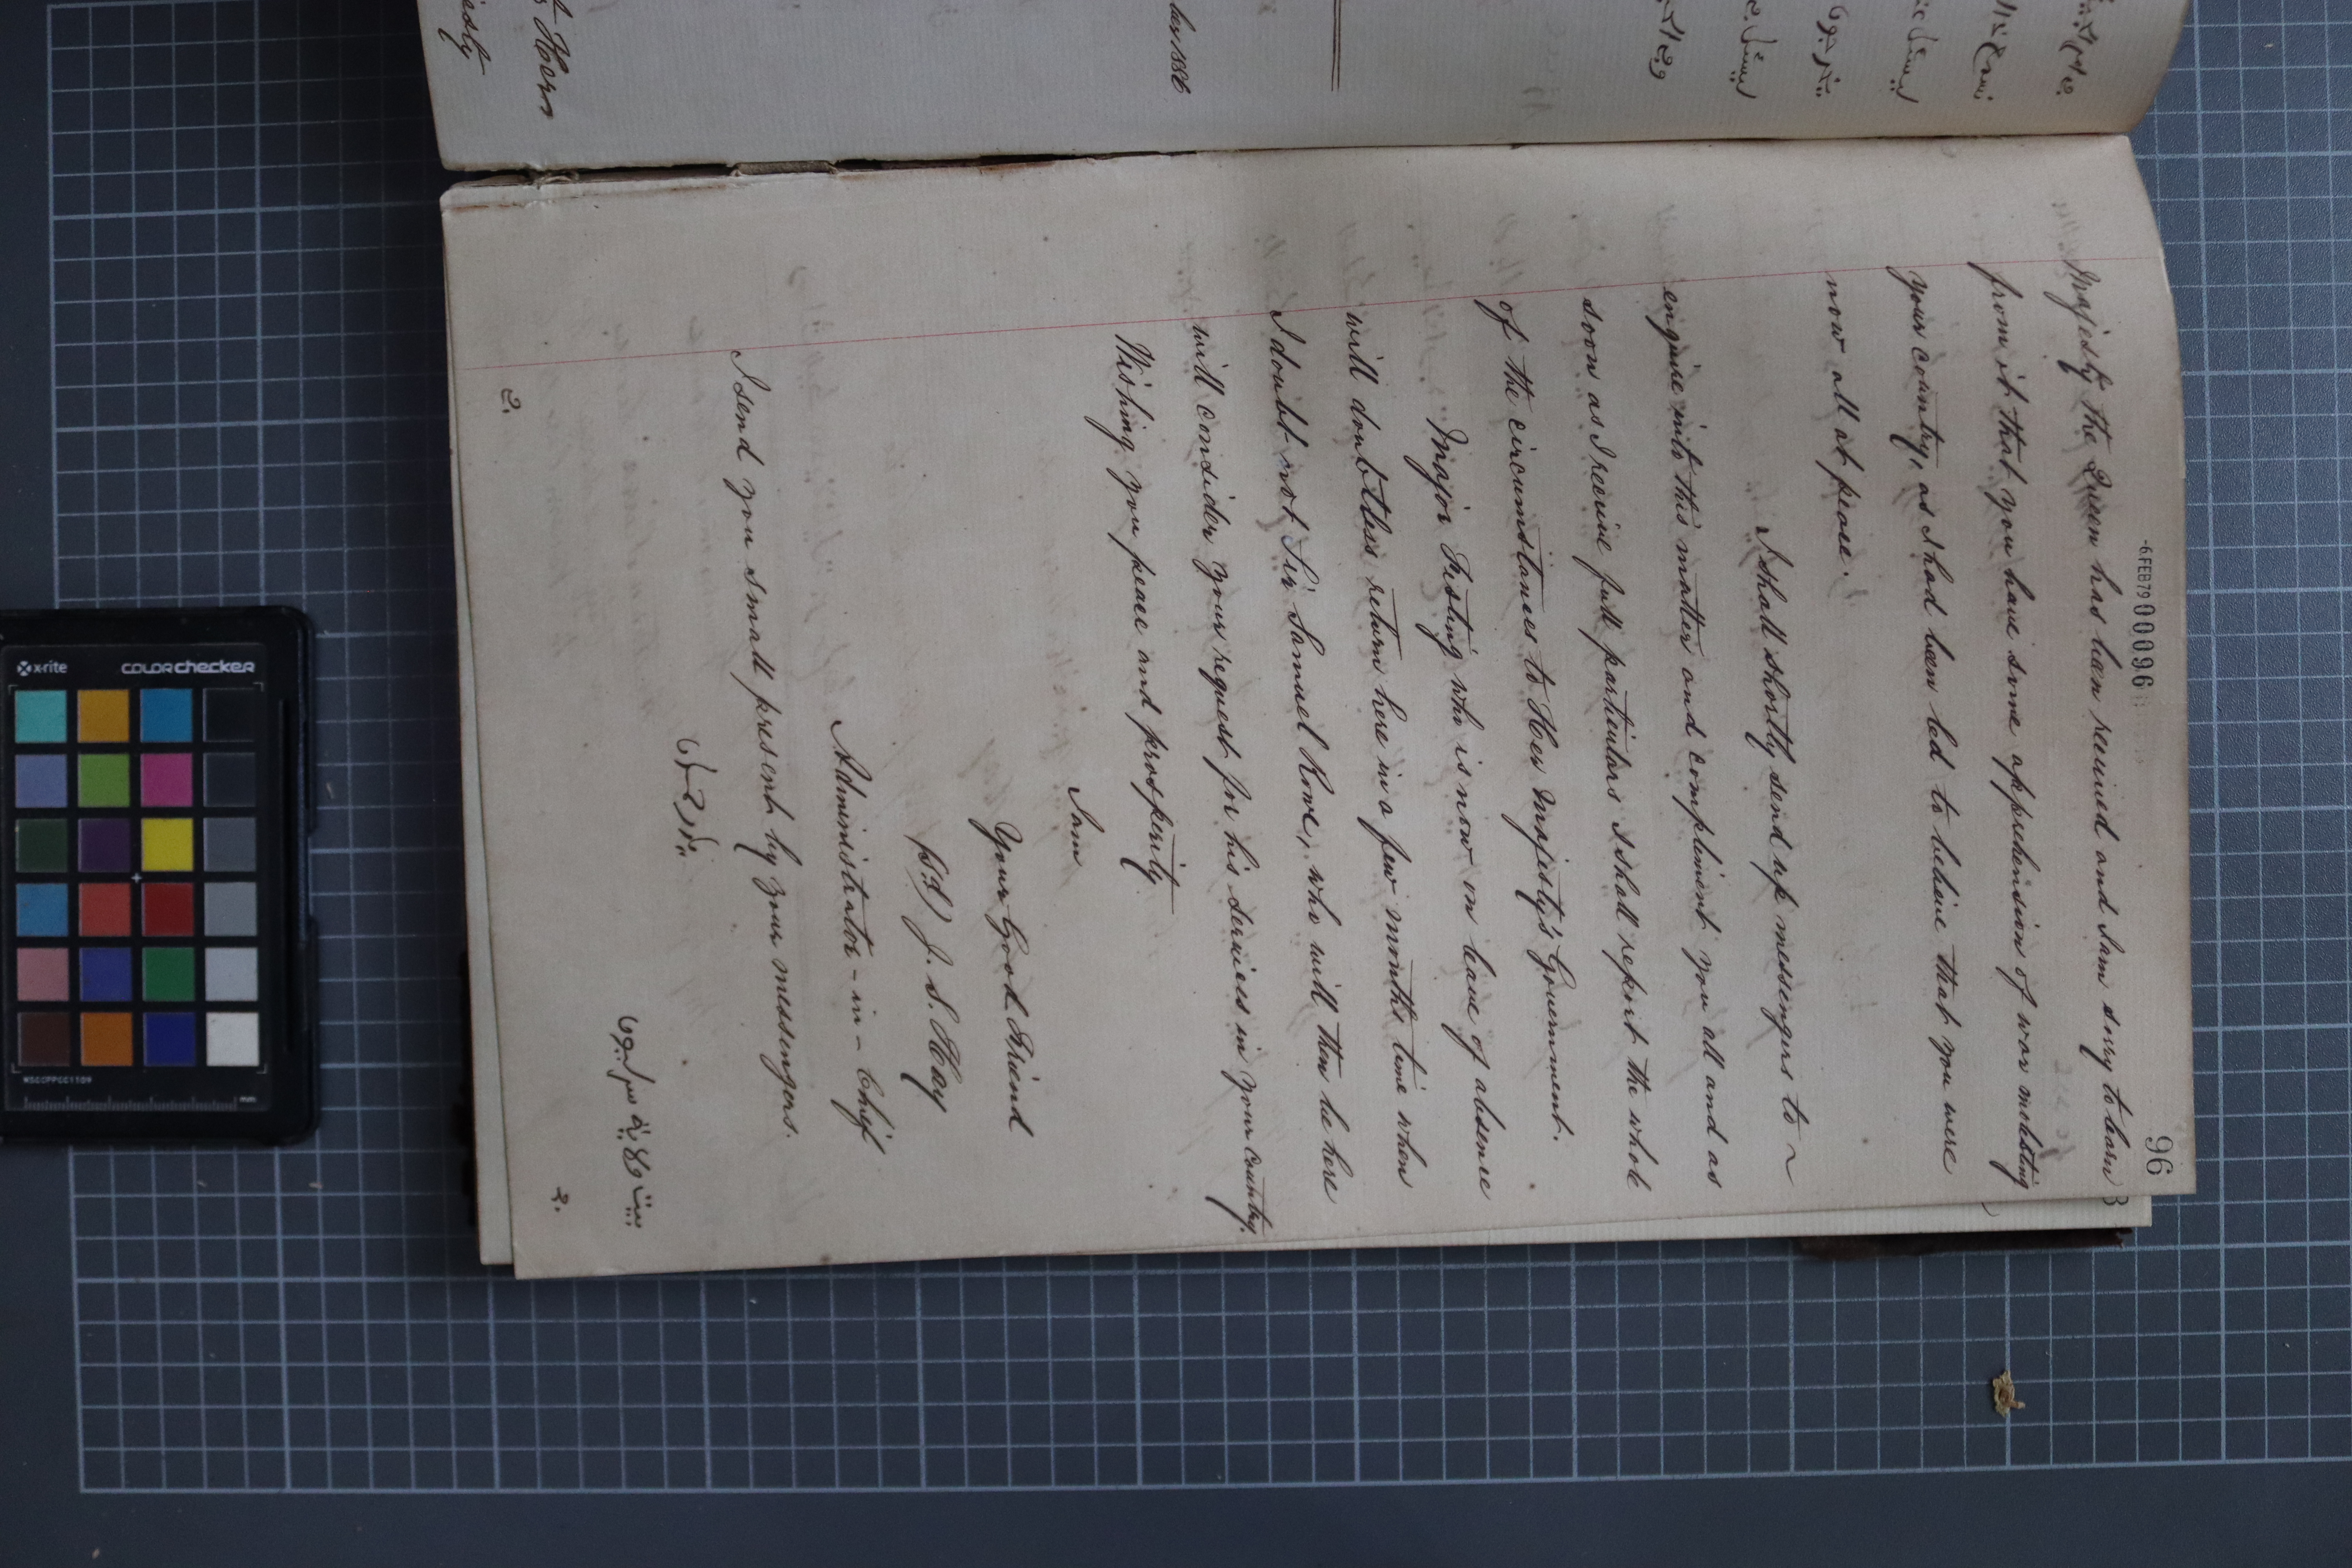 -6 FEB 79 00096
96
Majesty the Queen has been received and I am sorry to learn
from it that you have some apprehension of war molesting
your country, as I had been led to believe that you were
now all at peace.
I shall shortly send up messengers to ~
enquire into this matter and compliment you all and as
soon as I receive full particulars I shall report the whole
of the circumstances to Her Majesty's Government.
Major Festing who is now on leave of absence
will doubtless return here in a few months time when
I doubt not Sir Samuel Rowe, who will then be here
will consider your request for his services in your country.
Wishing you peace and prosperity
I am
Your Good Friend
(Sd) J. S. Hay
Administrator-in-Chief
I send you small present by your messengers.
x-rite colorchecker
MSCCPPCC1109
mm